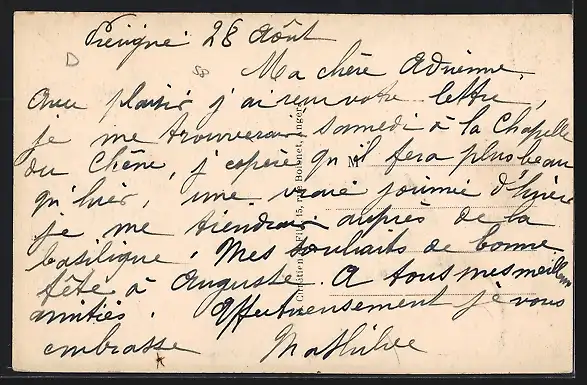 Précigné 28 Août
Ma chère Adrienne.
Avec plaisir j'ai reçu votre lettre,
je me trouverai samedi à la Chapelle
du Chêne, j'espère qu'il fera plus beau
qu'hier, une vraie journée d'hiver
je me tiendrai auprès de la
basilique. Mes souhaits de bonne
fête à Auguste. A tous mes meilleures
amitiés. Affectueusement je vous
embrasse Mathilde
15, rue Boisnet, Angers